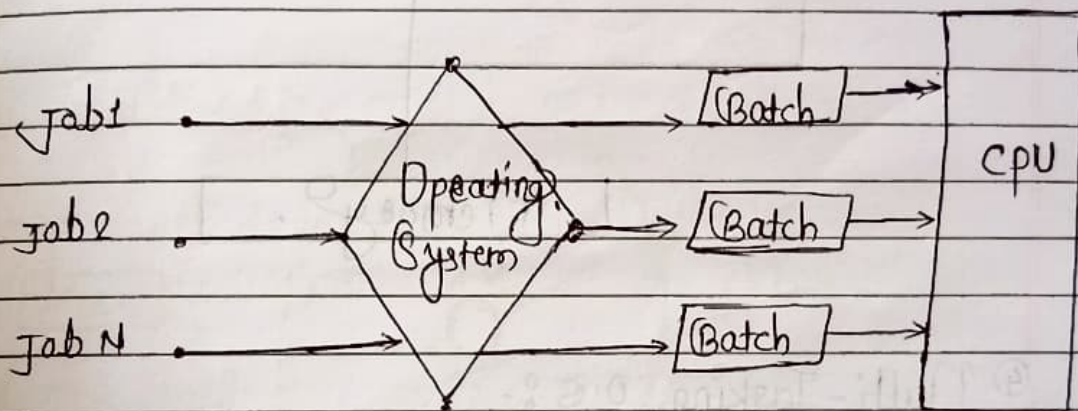 Job1
Job2
Job N
Opeating
System
Batch
Batch
Batch
CPU